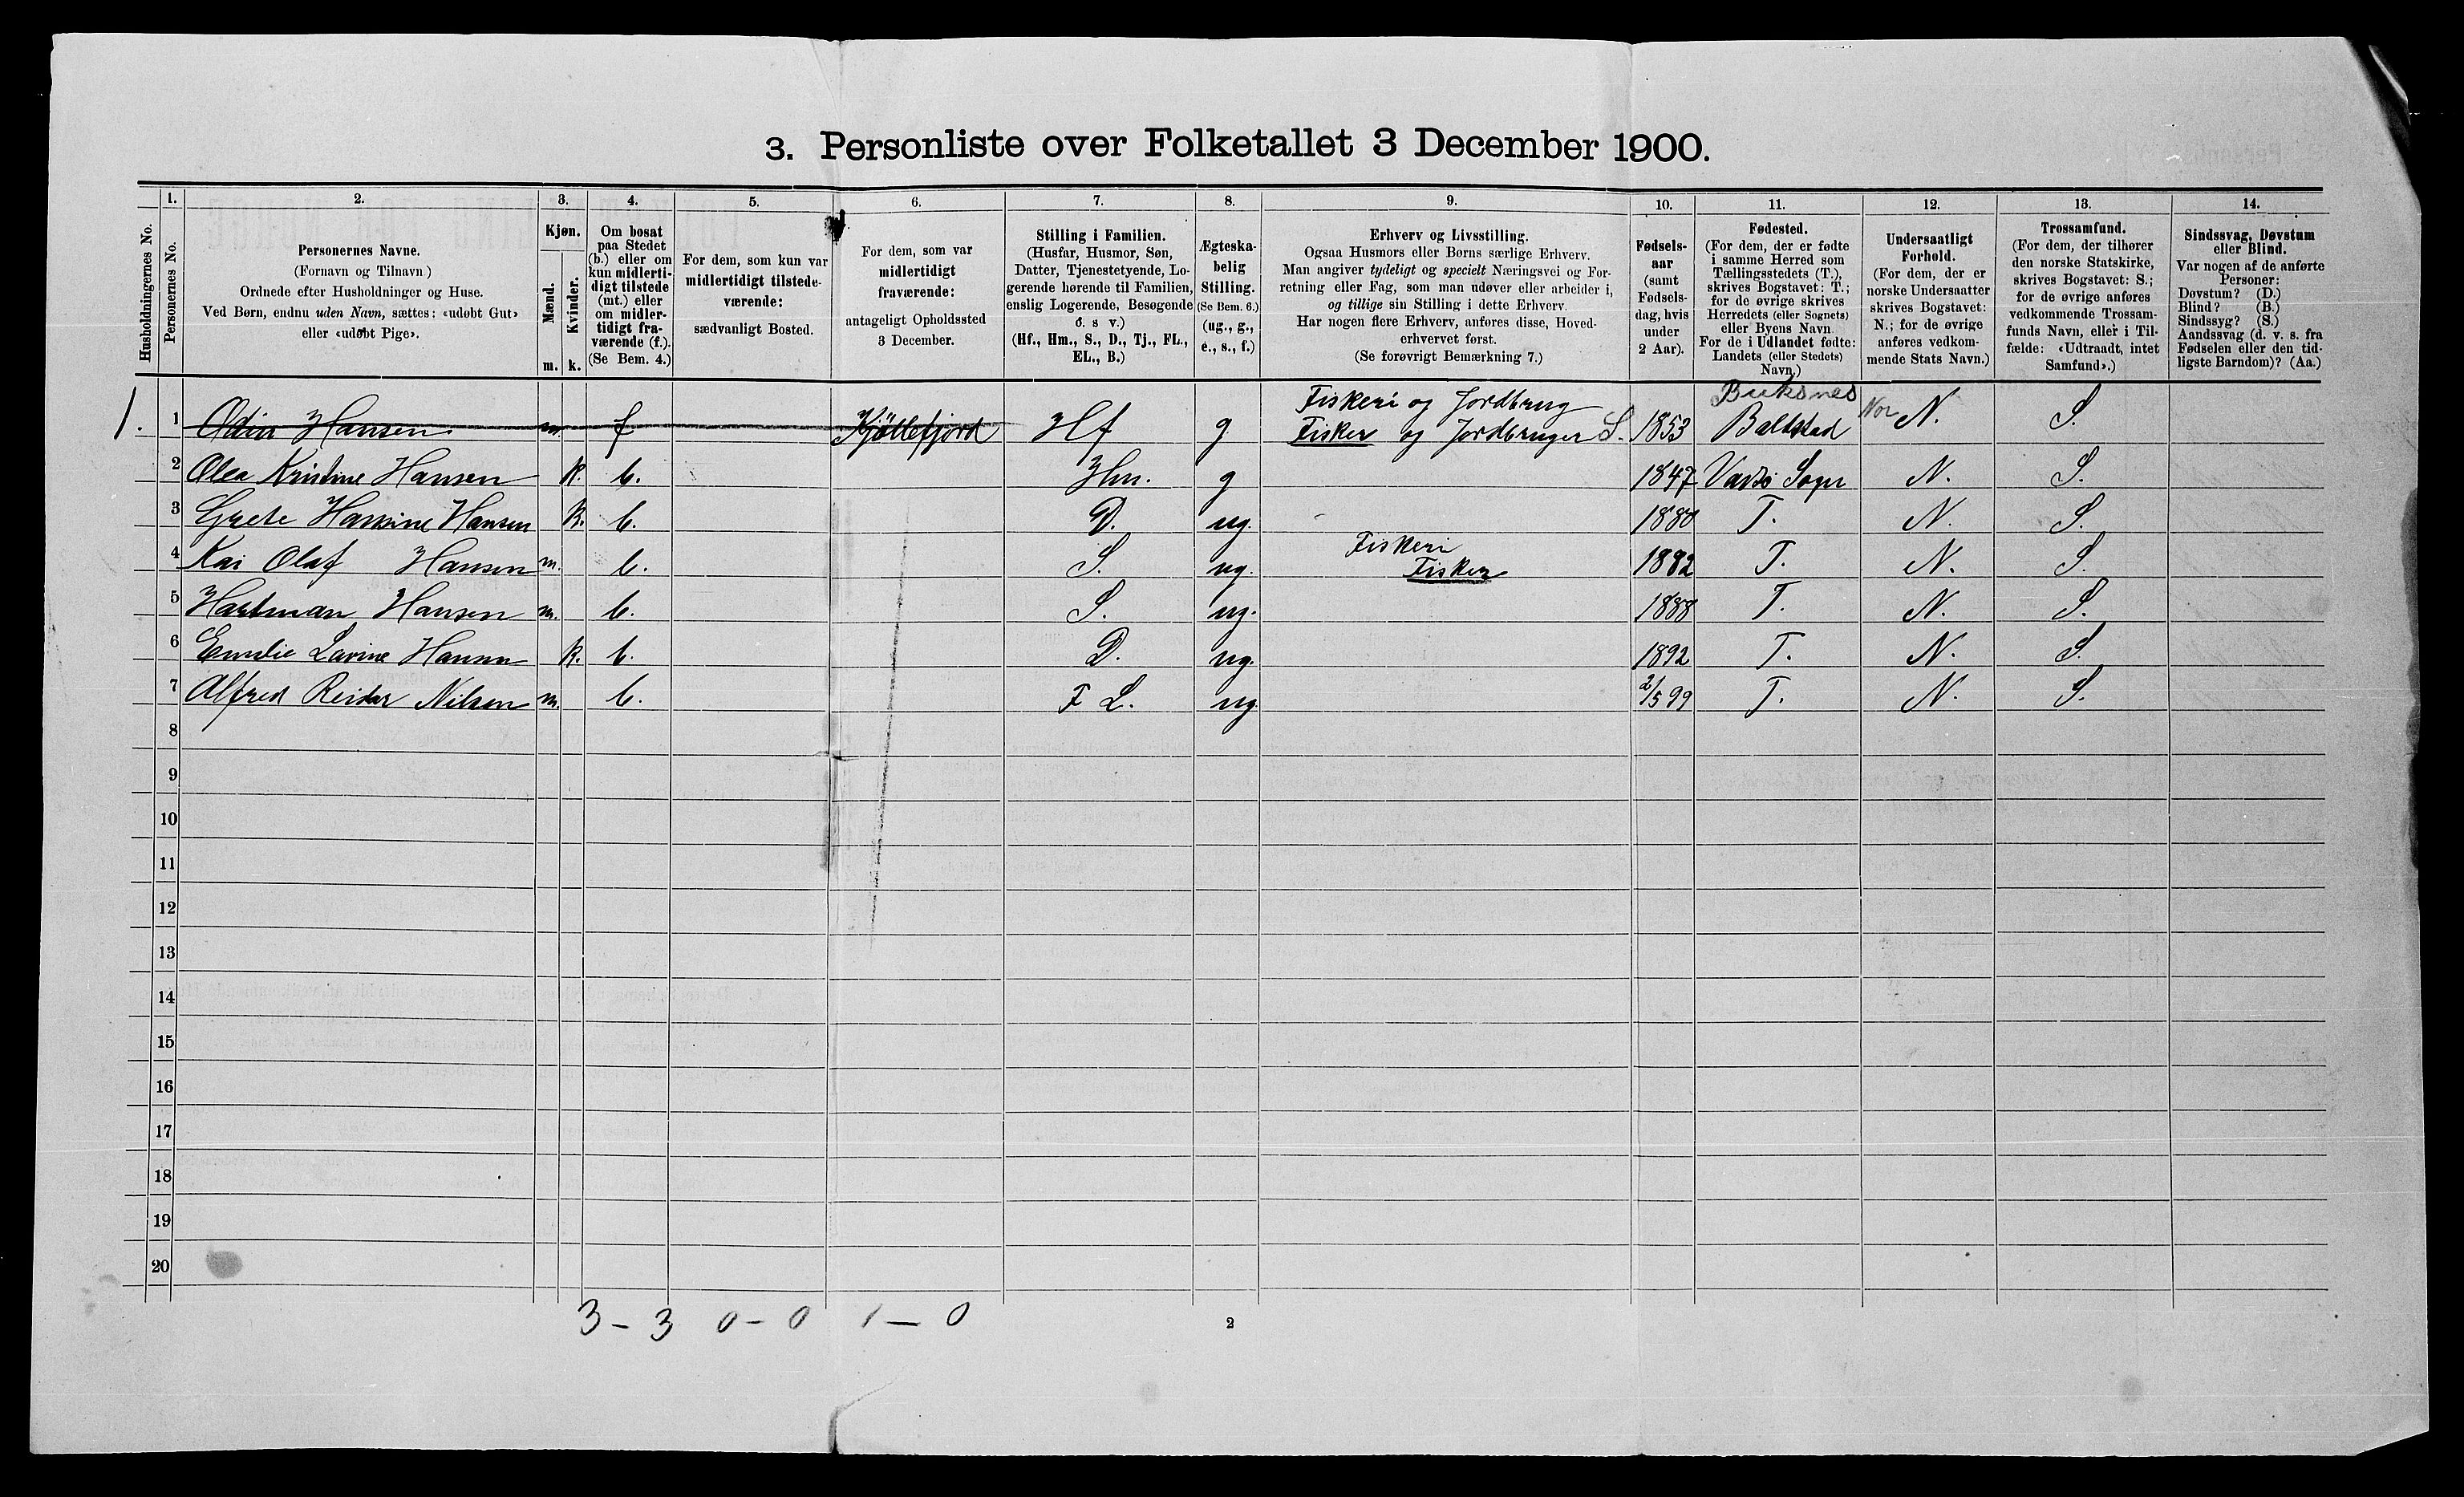 3. Personliste over Folketallet 3 December 1900.
Husholdningernes No.
1.
Personernes No.
2.
Personernes Navne.
(Fornavn og Tilnavn)
Ordnede efter Husholdninger og Huse.
Ved Børn, endnu uden Navn, sættes: «udøbt Gut»
eller «udøbt Pige».
3.
Kjøn.
Mænd.
Kvinder.
m. k.
4.
Om bosat
paa Stedet
(b.) eller om
kun midlerti-
digt tilstede
(mt.) eller
om midler-
tidigt fra-
værende (f.).
(Se Bem. 4.)
5.
For dem, som kun var
midlertidigt tilstede-
værende:
sædvanligt Bosted.
6.
For dem, som var
midlertidigt
fraværende:
antageligt Opholdssted
3 December.
7.
Stilling i Familien.
(Husfar, Husmor, Søn,
Datter, Tjenestetyende, Lo-
gerende hørende til Familien,
enslig Logerende, Besøgende
o. s v.)
(Hf., Hm., S., D., Tj., FL.,
EL., B.)
8.
Ægteska-
belig
Stilling.
(Se Bem. 6.)
(ug., g.,
e., s., f.)
9.
Erhverv og Livsstilling.
Ogsaa Husmors eller Børns særlige Erhverv.
Man angiver tydeligt og specielt Næringsvei og For-
retning eller Fag, som man udøver eller arbeider i,
og tillige sin Stilling i dette Erhverv.
Har nogen flere Erhverv, anføres disse, Hoved-
erhvervet først.
(Se forøvrigt Bemærkning 7.)
10.
Fødsels-
aar
(samt
Fødsels-
dag, hvis
under
2 Aar).
11.
Fødested.
(For dem, der er fødte
i samme Herred som
Tællingsstedets (T.),
skrives Bogstavet: T.;
for de øvrige skrives
Herredets (eller Sognets)
eller Byens Navn
For de i Udlandet fødte:
Landets (eller Stedets)
Navn.)
12.
Undersaatligt
Forhold.
(For dem, der er
norske Undersaatter
skrives Bogstavet:
N.; for de øvrige
anføres vedkom-
mende Stats Navn.)
13.
Trossamfund.
(For dem, der tilhører
den norske Statskirke,
skrives Bogstavet: S.;
for de øvrige anføres
vedkommende Trossam-
funds Navn, eller i Til-
fælde: «Udtraadt, intet
Samfund».)
14.
Sindssvag, Døvstum
eller Blind.
Var nogen af de anførte
Personer:
Døvstum? (D.)
Blind? (B.)
Sindssyg? (S.)
Aandssvag (d. v. s. fra
Fødselen eller den tid-
ligste Barndom)? (Aa.)
Fiskeri og Jordbrug Buksnes
1. 1 Odin Hansen m. f Kjøllefjord Hf g Fisker og Jordbruger S. 1853 Baltstad Nor N. S.
2 Olea Kristine Hansen k. b. Hm. g 1847 Vadsö Sogn N. S.
3 Grete Hansine Hansen k. b. D. ug. 1880 T. N. S.
Fiskeri
4 Kai Olaf Hansen m. b. S. ug. Fisker 1882 T. N. S.
5 Hartman Hansen m. b. S. ug. 1888 T. N. S.
6 Emilie Lavine Hansen k. b. D. ug. 1892 T. N. S.
7 Alfred Reidar Nilsen m. b. F L. ug 2/5 99 T. N. S.
8
9
10
11
12
13
14
15
16
17
18
19
20
3 - 3 0 - 0 1 - 0
2